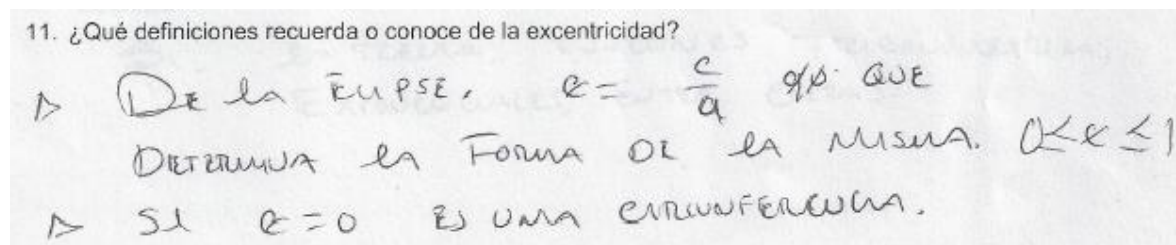 11. ¿Qué definiciones recuerda o conoce de la excentricidad?
▷ De la Elipse. e = c/a QUE
DETERMINA la FORMA DE la MISMA. 0≤e≤1
▷ SI e=0 ES UNA CIRCUNFERENCIA.